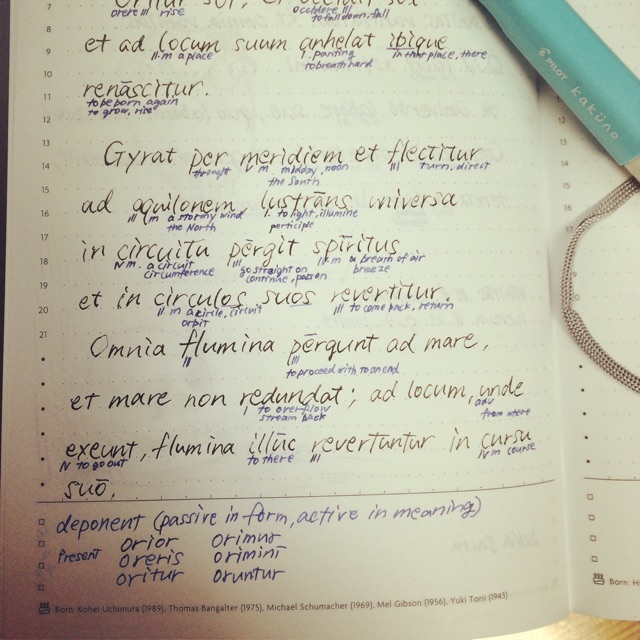 7
et ad locum suum anhelat ibique
8
orere III rise
occidere III
to fall down, fall
9
II m a place
I panting
to breath hard
in that place, there
renāscitur.
10
11
to be born again
to grow, rise
12
Gyrat per meridiem et flectitur
13
14
throught
V m midday, noon
the South
III turn, direct
15
ad aquilonem lustrāns universa
16
III m a stormy wind
the North
I to light, illumine
participle
17
in circuitu pērgit spīritus
18
IV m. a circuit
circumference
III
go straight on
continue, pass on
IV m a breath of air
breeze
19
et in circulos suos revertitur.
20
II m a circle, circuit
orbit
III to come back, return
21
Omnia flumina pērgunt ad mare,
II
III
to proceed with to an end
et mare non redundat; ad locum, unde
I to overflow
stream back
adv
from where
exeunt, flumina illūc revertuntur in cursu
IV to go out
to there
III
IV m course
suō.
deponent (passive in form, active in meaning)
Present
orior orimur
oreris oriminī
oritur oruntur
Born: Kohei Uchimura (1989), Thomas Bangalter (1975), Michael Schumacher (1969), Mel Gibson (1956), Yuki Torii (1943)
PILOT kaküno
Born: H